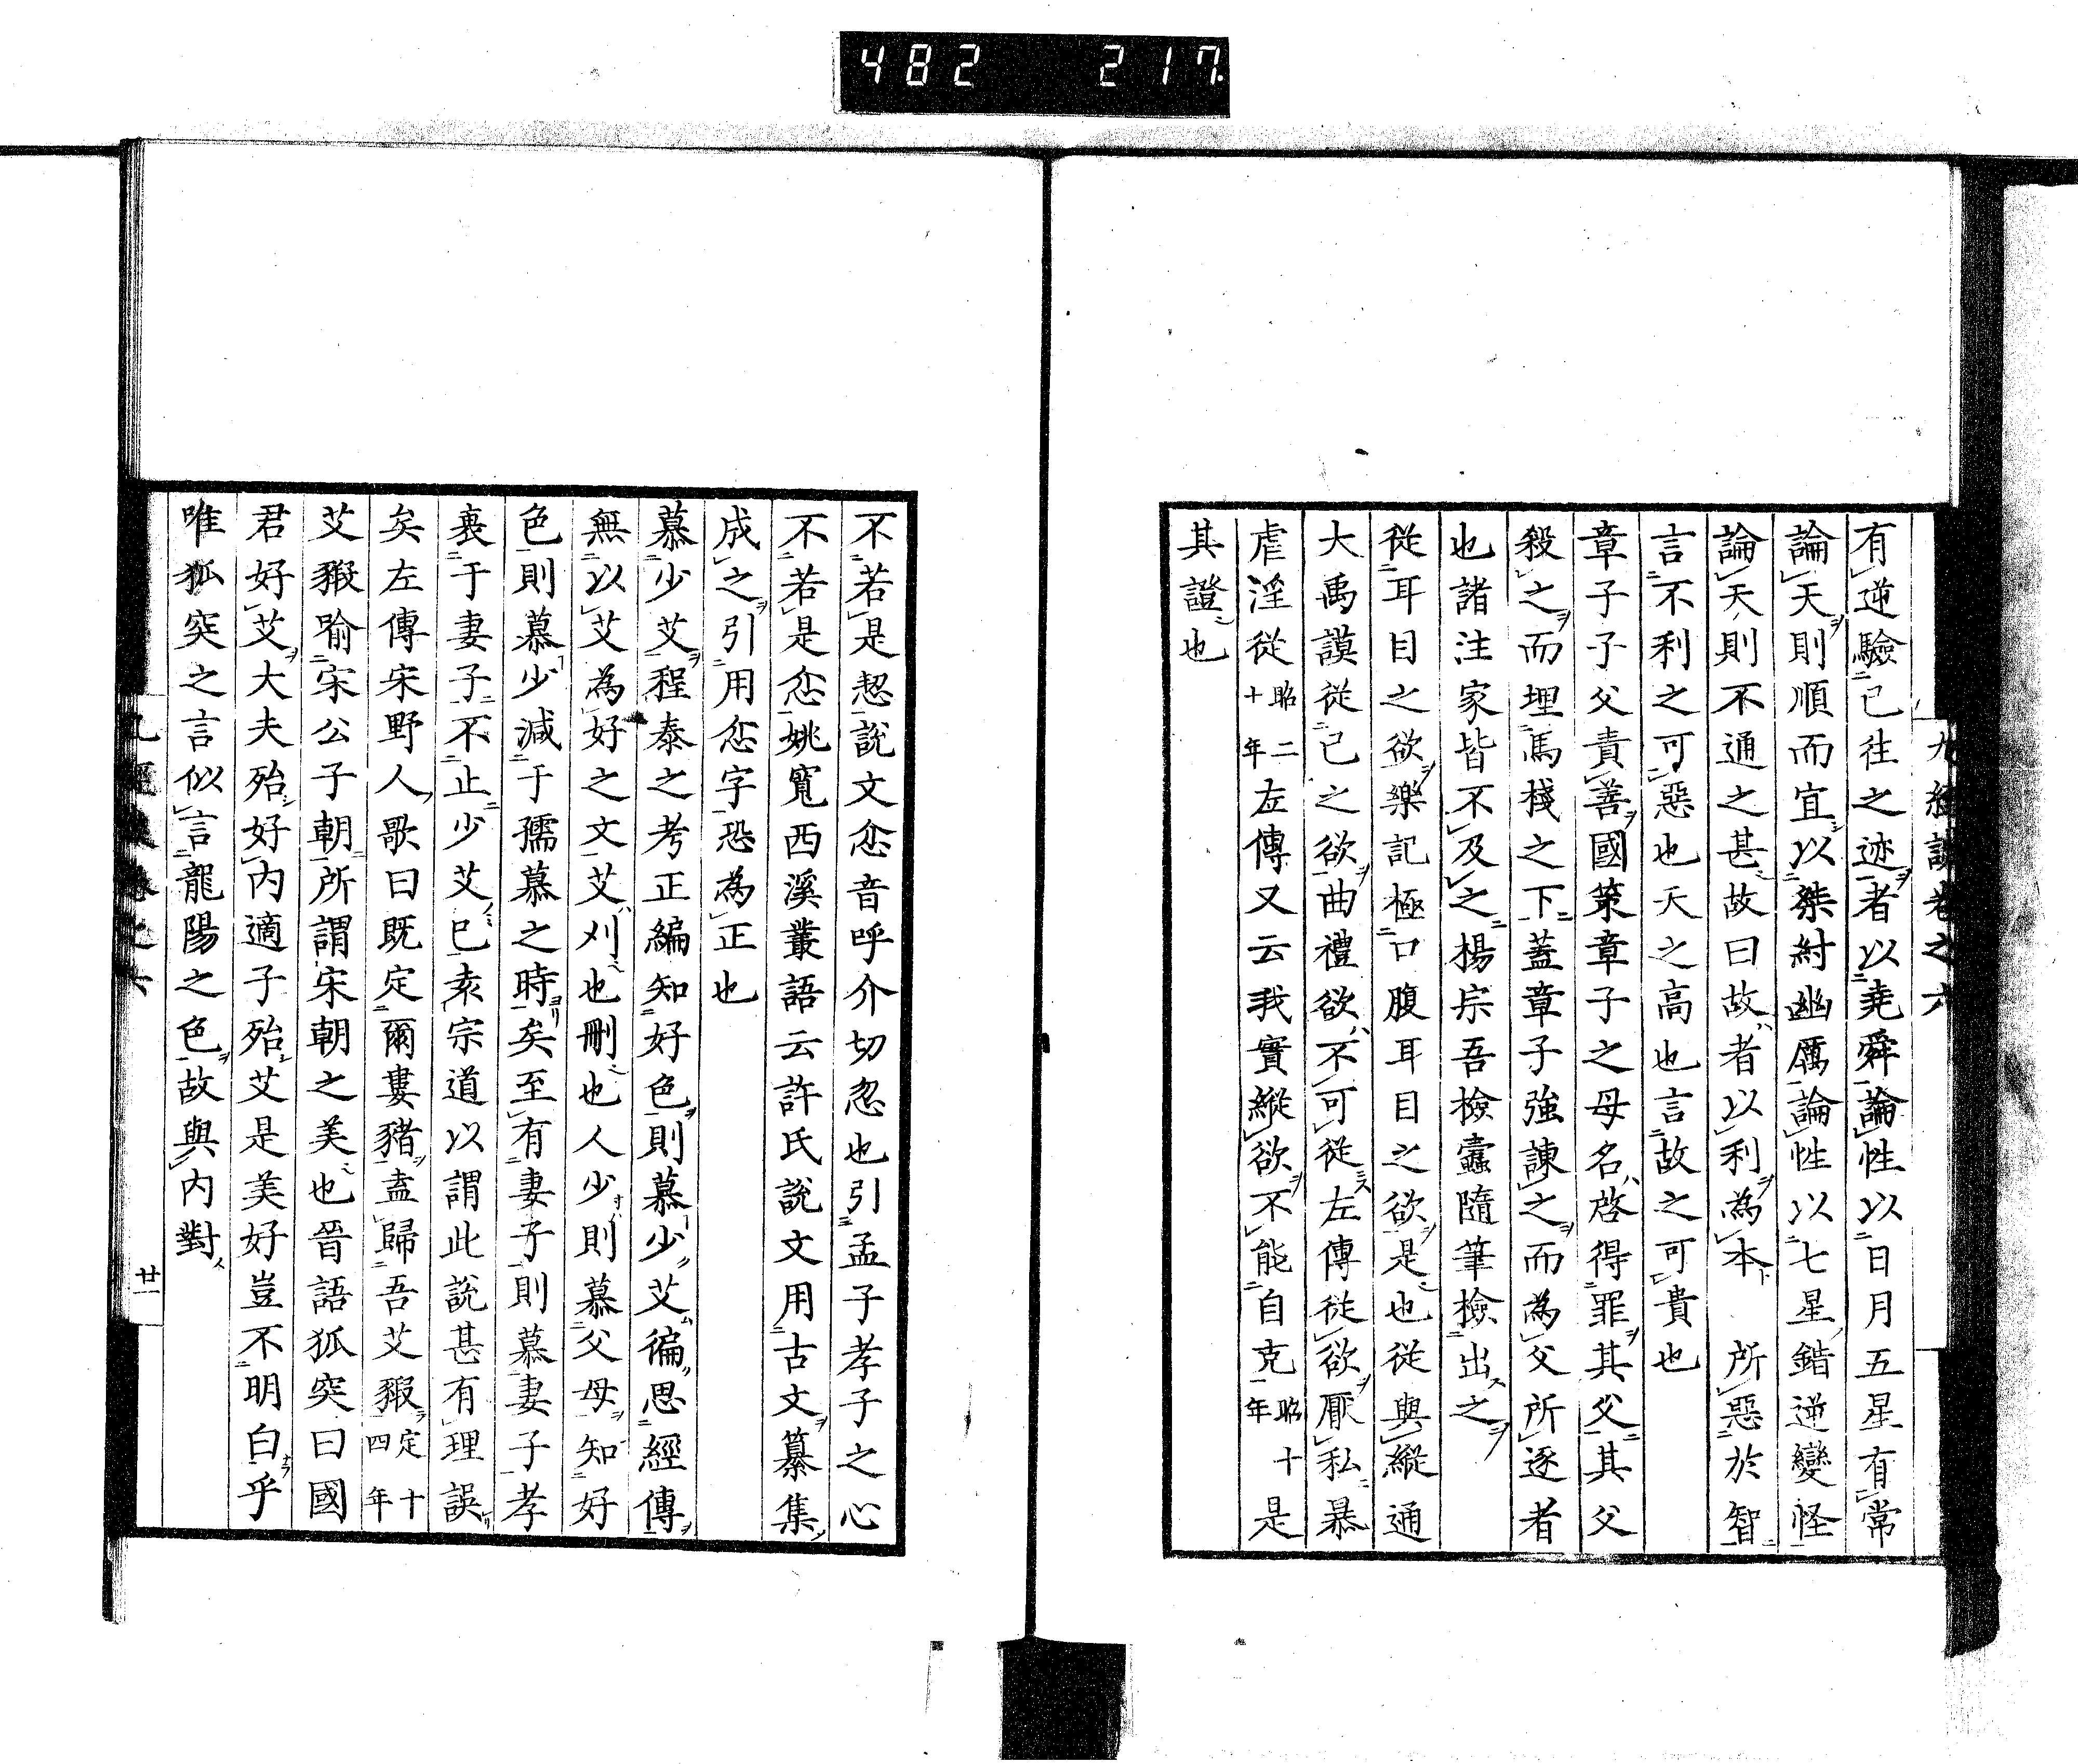 482 217.
九經談卷之六
有逆驗已往之迹者以堯舜論性以日月五星有常
論天則順而宜以桀紂幽厲論性以七星錯逆變怪
論天則不通之甚故曰故者以利為本 所惡於智
言不利之可惡也天之高也言故之可貴也
章子子父責善國策章子之母名啓得罪其父其父
殺之而埋馬棧之下蓋章子強諫之而為父所逐者
也諸注家皆不及之楊宗吾檢蠹隨筆檢出之
從耳目之欲樂記極口腹耳目之欲是也從與縱通
大禹謨從己之欲曲禮欲不可從左傳從欲厭私暴
虐淫從昭二十年左傳又云我實縱欲不能自克昭十年是
其證也
不若是恝說文忿音呼介切忽也引孟子孝子之心
不若是忿姚寬西溪叢語云許氏說文用古文纂集
成之引用忿字恐為正也
慕少艾程泰之考正編知好色則慕少艾徧思經傳
無以艾為好之文艾刈也刪也人少則慕父母知好
色則慕少減于孺慕之時矣至有妻子則慕妻子孝
衰于妻子不止少艾已袁宗道以謂此說甚有理誤
矣左傳宋野人歌曰既定爾婁豬盍歸吾艾豭定十四年
艾豭喻宋公子朝所謂宋朝之美也晉語狐突曰國
君好艾大夫殆好內適子殆艾是美好豈不明白乎
唯狐突之言似言龍陽之色故與內對
廿一